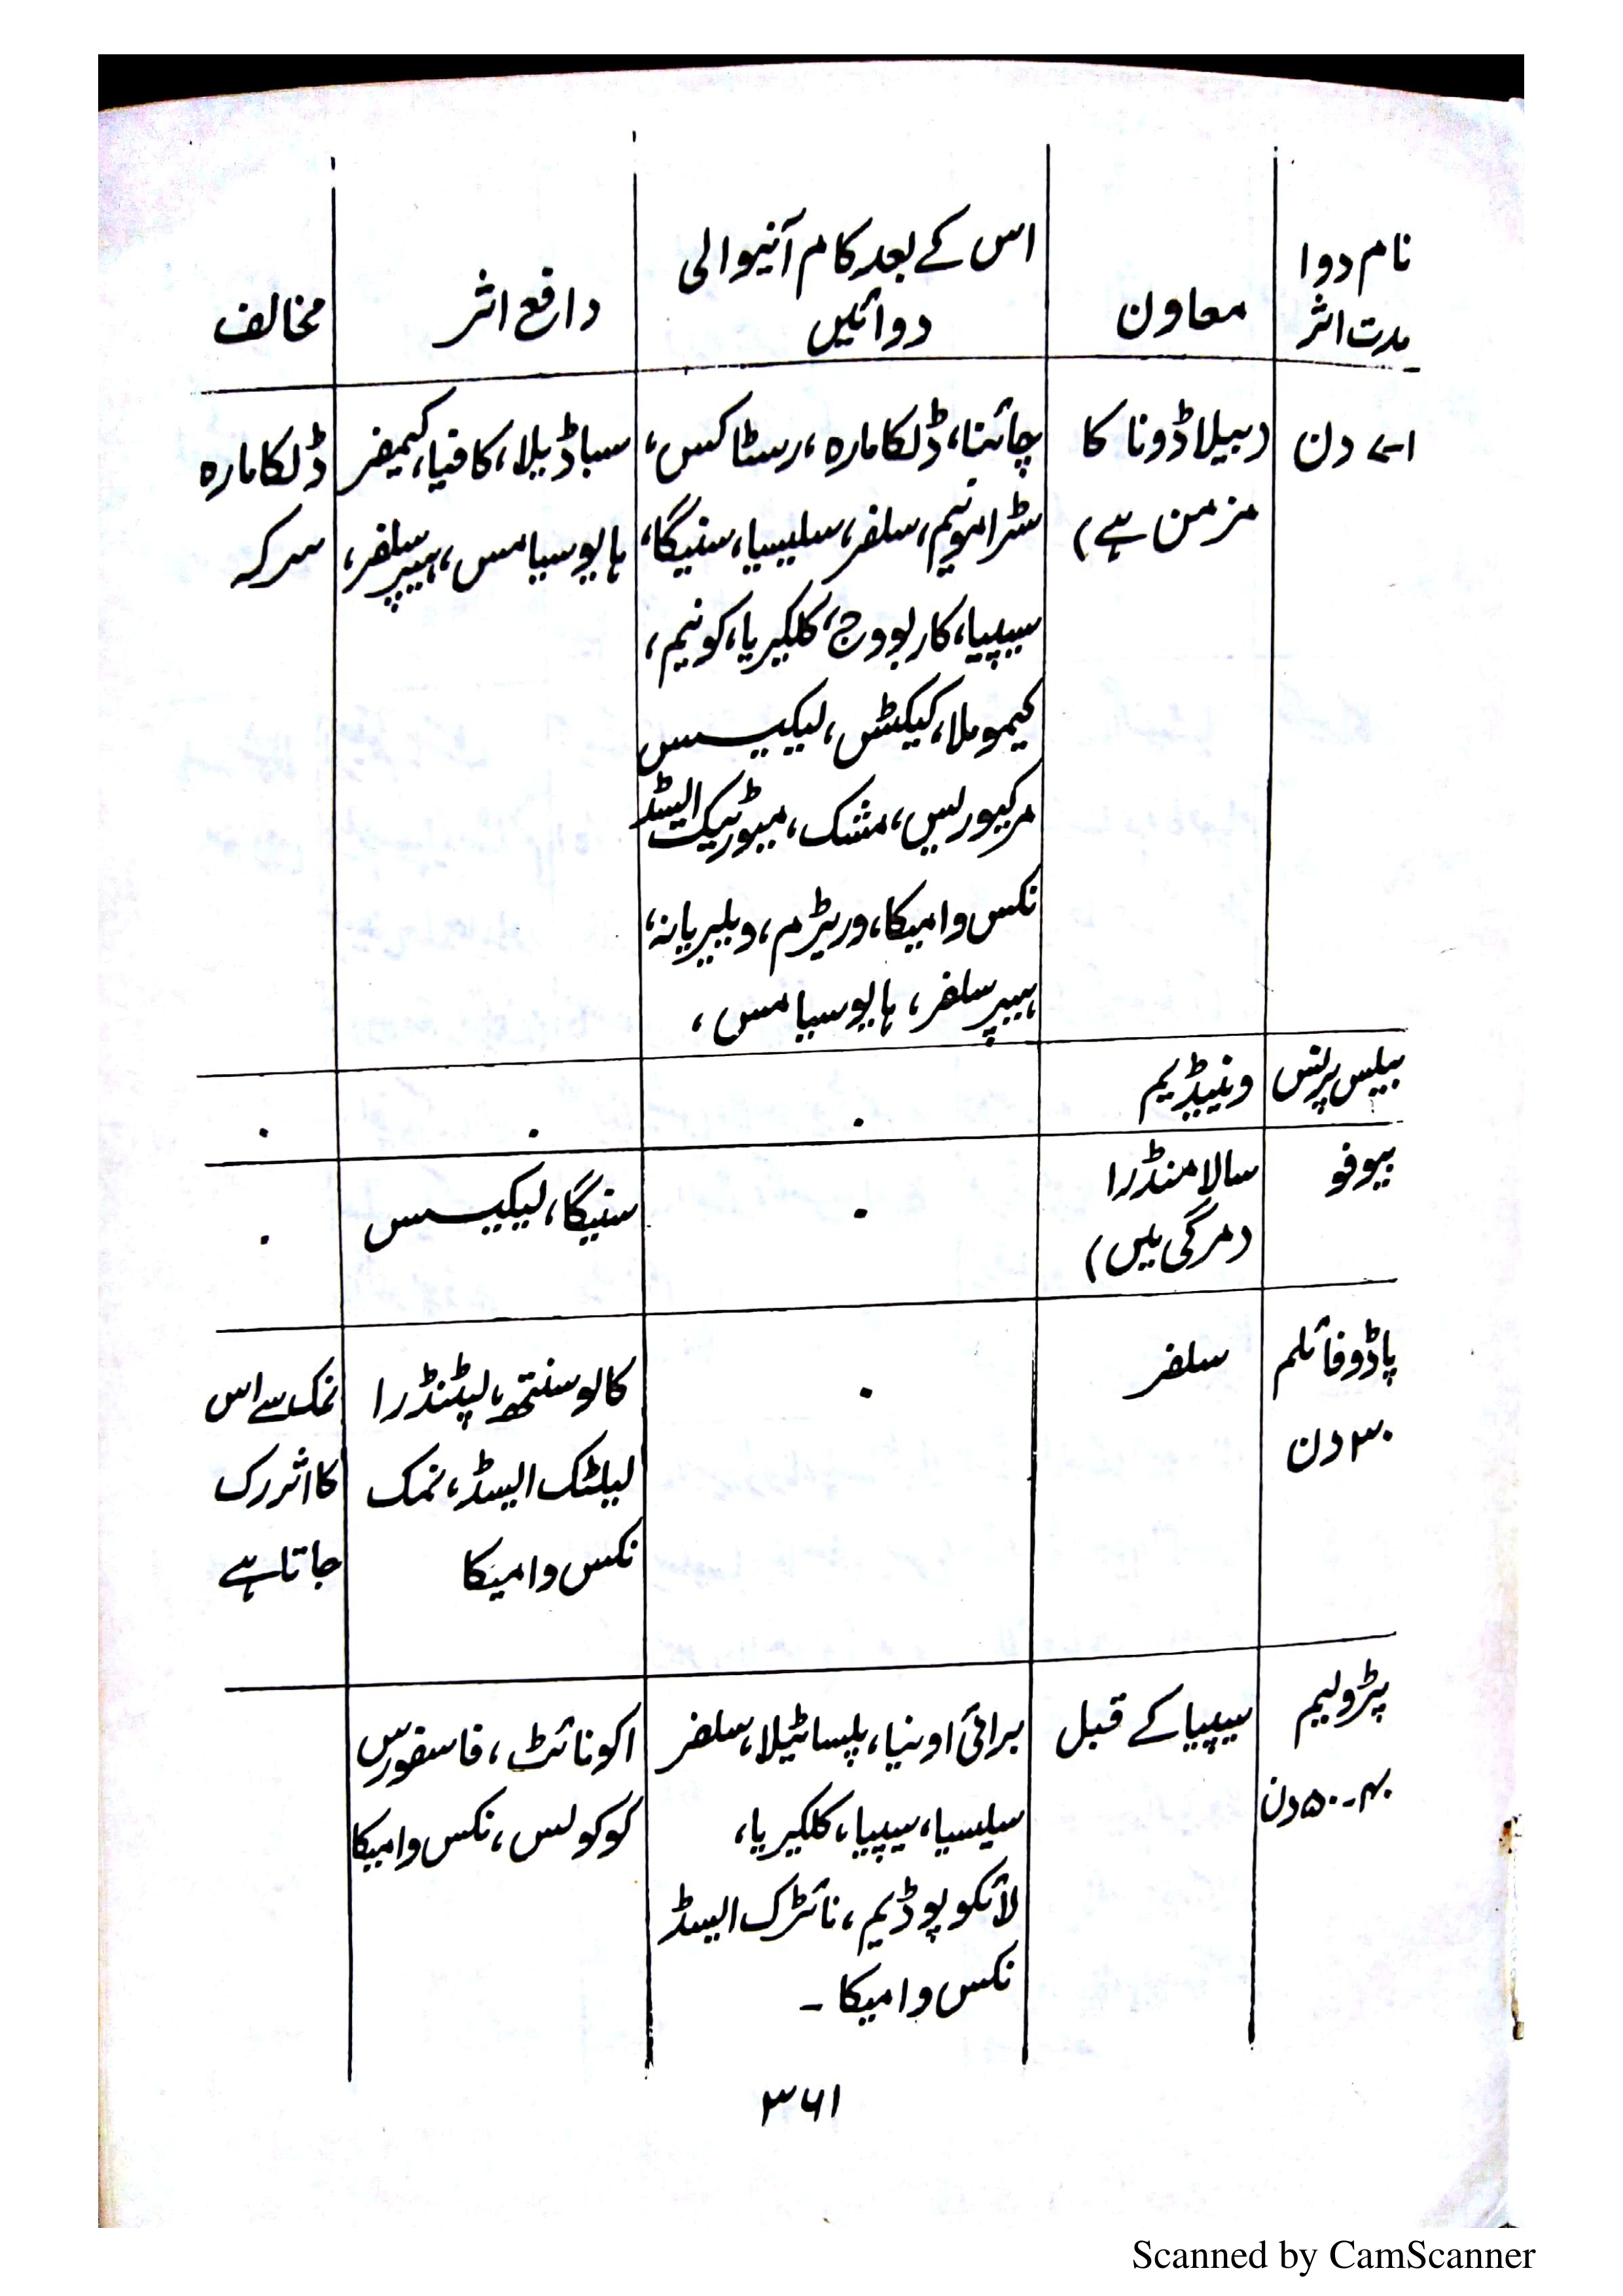 نام دوا
مدت اثر
معاون
اس کے بعد کام آنیوالی
دوائیں
دافع اثر
مخالف
۷-۱ دن
(بیلاڈونا کا
مزمن ہے)
چائنا، ڈلکامارہ، رسٹاکس،
سٹرامونیم، سلفر، سلیسیا، سنیگا،
سیپیا، کاربووج، کلکیریا، کونیم،
کیموملا، کیکٹس، لیکیسس
مرکیورس، مشک، میوریٹک ایسڈ
نکس وامیکا، وریٹرم، ویلیریانہ،
ہیپر سلفر، ہایوسیامس،
سباڈیلا، کافیا، کیمفر
ہایوسیامس، ہیپر سلفر،
ڈلکامارہ
سرکہ
بیلس پرنس
ونیڈیم
۰
۰
۰
بیوفو
سالامنڈرا
(مرگی میں)
۰
سنیگا، لیکیسس
۰
پاڈوفائلم
۳۰ دن
سلفر
۰
کالوسنتھ، لپٹنڈرا
لیلٹک ایسڈ، نمک
نکس وامیکا
نمک سے اس
کا اثر رک
جاتا ہے
پٹرولیم
۴۰-۵۰ دن
سیپیا کے قبل
برائی اونیا، پلساٹیلا، سلفر
سلیسیا، سیپیا، کلکیریا،
لائکوپوڈیم، نائٹرک ایسڈ
نکس وامیکا ۔
اکونائٹ، فاسفورس
کوکولس، نکس وامیکا
۳۶۱
Scanned by CamScanner